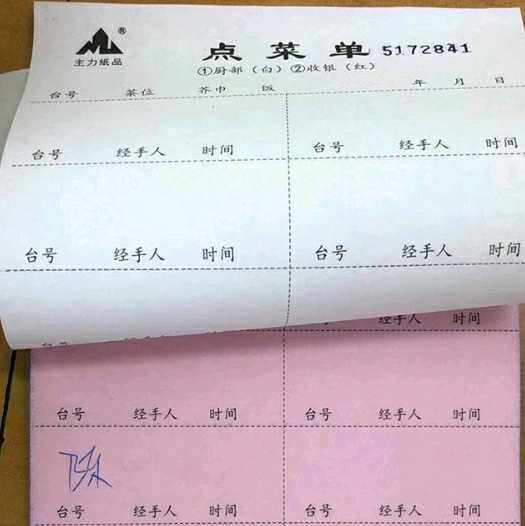 ®
主力纸品
点菜单 5172841
①厨部（白）②收银（红）
台号 茶位 芥巾 饭 年 月 日
台号 经手人 时间 台号 经手人 时间
台号 经手人 时间 台号 经手人 时间
经手人 时间
台号 经手人 时间 台号 经手人 时间
台号 经手人 时间 台号 经手人 时间